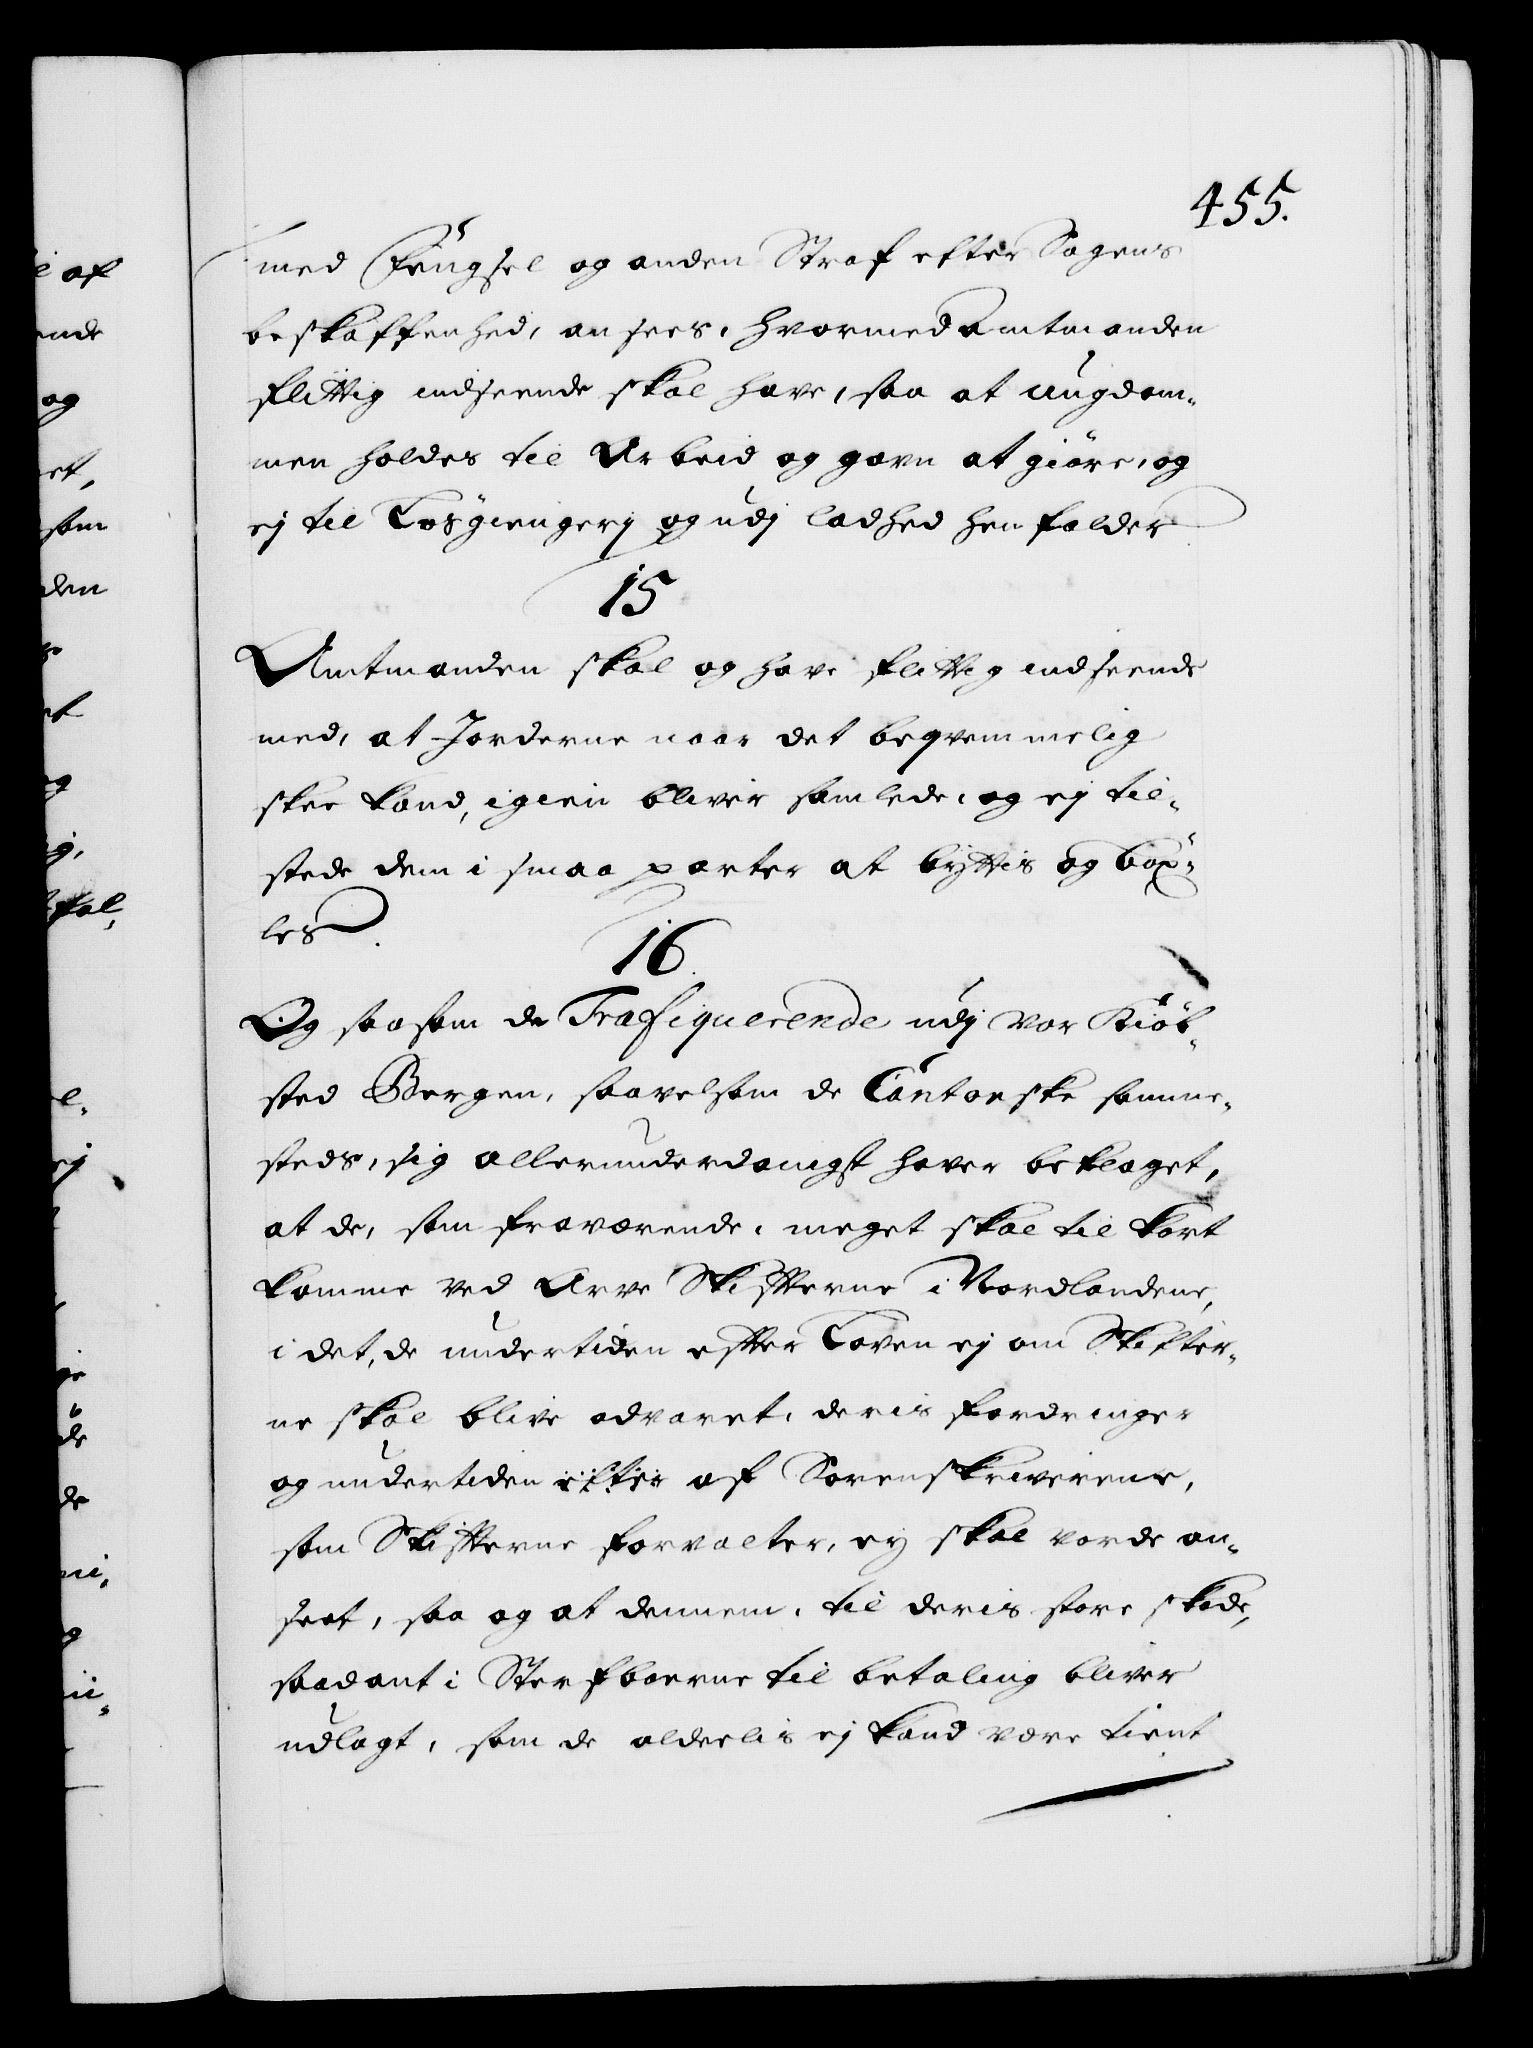 455.
med Fengsel og anden Straf efter Sagens
beskaffenhed, ansees, hvormed Amtmanden
flittig indseende skal have, saa at ungdom-
men holdes til Arbeid og gavn at giöre, og
ej til Løsgiengerj og udj ladhed henfalder
15
Amtmanden skal og have flittig indseende
med, at Jorderne naar det beqvemmelig
skee kand, igien bliver samlede, og ej til-
stede dem i smaa parter at byttis og böx-
les.
16.
Og saasom de Trafiquerende udj vor Kiöb-
sted Bergen, saavelsom de Contorske samme-
steds, sig allerunderdanigst haver beklaget,
at de, som fraværende, meget skal til kort
komme ved Arve Skifterne i Nordlandene,
i det, de undertiden efter Loven ej om Skifter-
ne skal blive advaret, deris fordringer
og undertiden efter af Sorenskriverene,
som Skifterne forvalter, ey skal vorde an-
seet, saa og at dennem, til deris store skade,
saadant i Sterfboerne til betaling bliver
udlagt, som de aldeelis ej kand være tient
af
ende
og
et,
som
den
et
og
fal,
ej
de
de